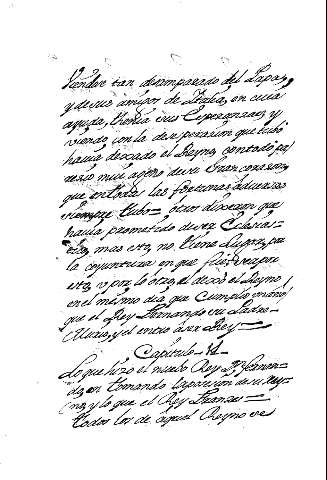 Viendose tan desamparado del Papa,
y de sus amigos de Italia, en cuia
ayuda, tenia sus Esperanzas, y
viendo con la desesperacion que tubo
havia dexado el Reyno, contado pa
recio mui ageno de su Gran corazon,
que en todas las fortunas adversas
siempre tubo= otros dixeron que
havia prometido de ser Eclesias-
tico, mas esto, no tiene Lugar, por
la coyuntura en que fue, y por
esto, y por lo otro, el dexó el Reyno
en el mismo dia que
que el Rey Fernando su Padre
Murio, y el entro a ser Rey=
Capitulo
Lo que hizo el nuebo Rey Dn. Fernan-
do, en tomando la posesion de su Rey-
no, y lo que el Rey Frances=
todos los de aquel Reyno se